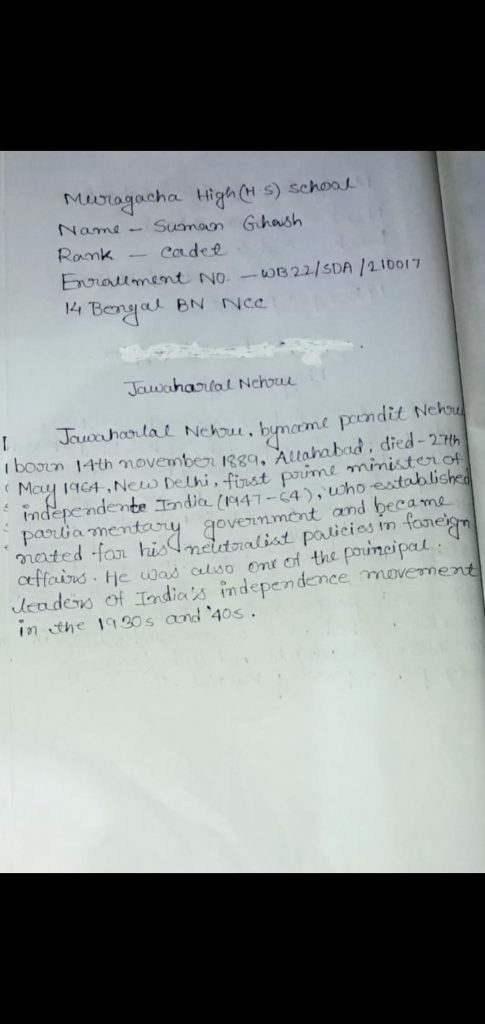 Muragacha High (H.S) School
Name - Suman Ghosh
Rank - Cadet
Enrollment No. - WB22/SDA/210017
14 Bengal BN NCC
Jawaharlal Nehru
Jawaharlal Nehru, byname pandit Nehru
born 14th november 1889, Allahabad, died - 27th
May 1964, New Delhi, first prime minister of
independente India (1947-64), who established
parliamentary government and became
noted for his neutralist policies in foreign
affairs. He was also one of the principal
leaders of India's independence movement
in the 1930s and '40s.